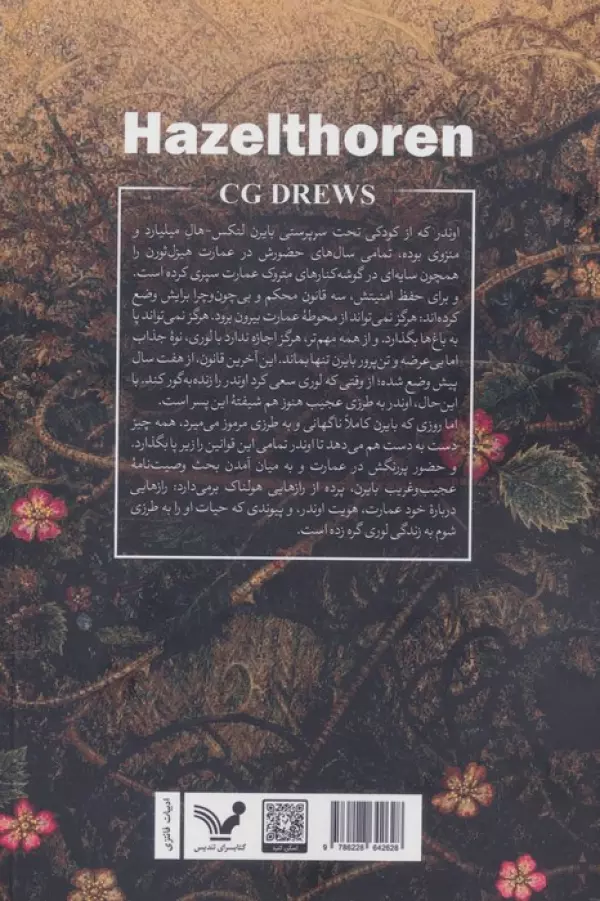 Hazelthoren
CG DREWS
اوندر که از کودکی تحت سرپرستی بایرن لنکس-هال میلیارد و
منزوی بوده، تمامی سال‌های حضورش در عمارت هیزل‌ثورن را
همچون سایه‌ای در گوشه‌کنارهای متروک عمارت سپری کرده است.
و برای حفظ امنیتش، سه قانون محکم و بی‌چون‌وچرا برایش وضع
کرده‌اند: هرگز نمی‌تواند از محوطهٔ عمارت بیرون برود. هرگز نمی‌تواند پا
به باغ‌ها بگذارد. و از همه مهم‌تر، هرگز اجازه ندارد با لوری، نوهٔ جذاب
اما بی‌عرضه و تن‌پرور بایرن تنها بماند. این آخرین قانون، از هفت سال
پیش وضع شده؛ از وقتی که لوری سعی کرد اوندر را زنده‌به‌گور کند. با
این‌حال، اوندر به طرزی عجیب هنوز هم شیفتهٔ این پسر است.
اما روزی که بایرن کاملاً ناگهانی و به طرزی مرموز می‌میرد، همه چیز
دست به دست هم می‌دهد تا اوندر تمامی این قوانین را زیر پا بگذارد.
و حضور پررنگش در عمارت و به میان آمدن بحث وصیت‌نامهٔ
عجیب‌وغریب بایرن، پرده از رازهایی هولناک برمی‌دارد: رازهایی
دربارهٔ خود عمارت، هویت اوندر، و پیوندی که حیات او را به طرزی
شوم به زندگی لوری گره زده است.
ادبیات فانتزی
کتابسرای تندیس
اسکن کنید
9 786228 642628